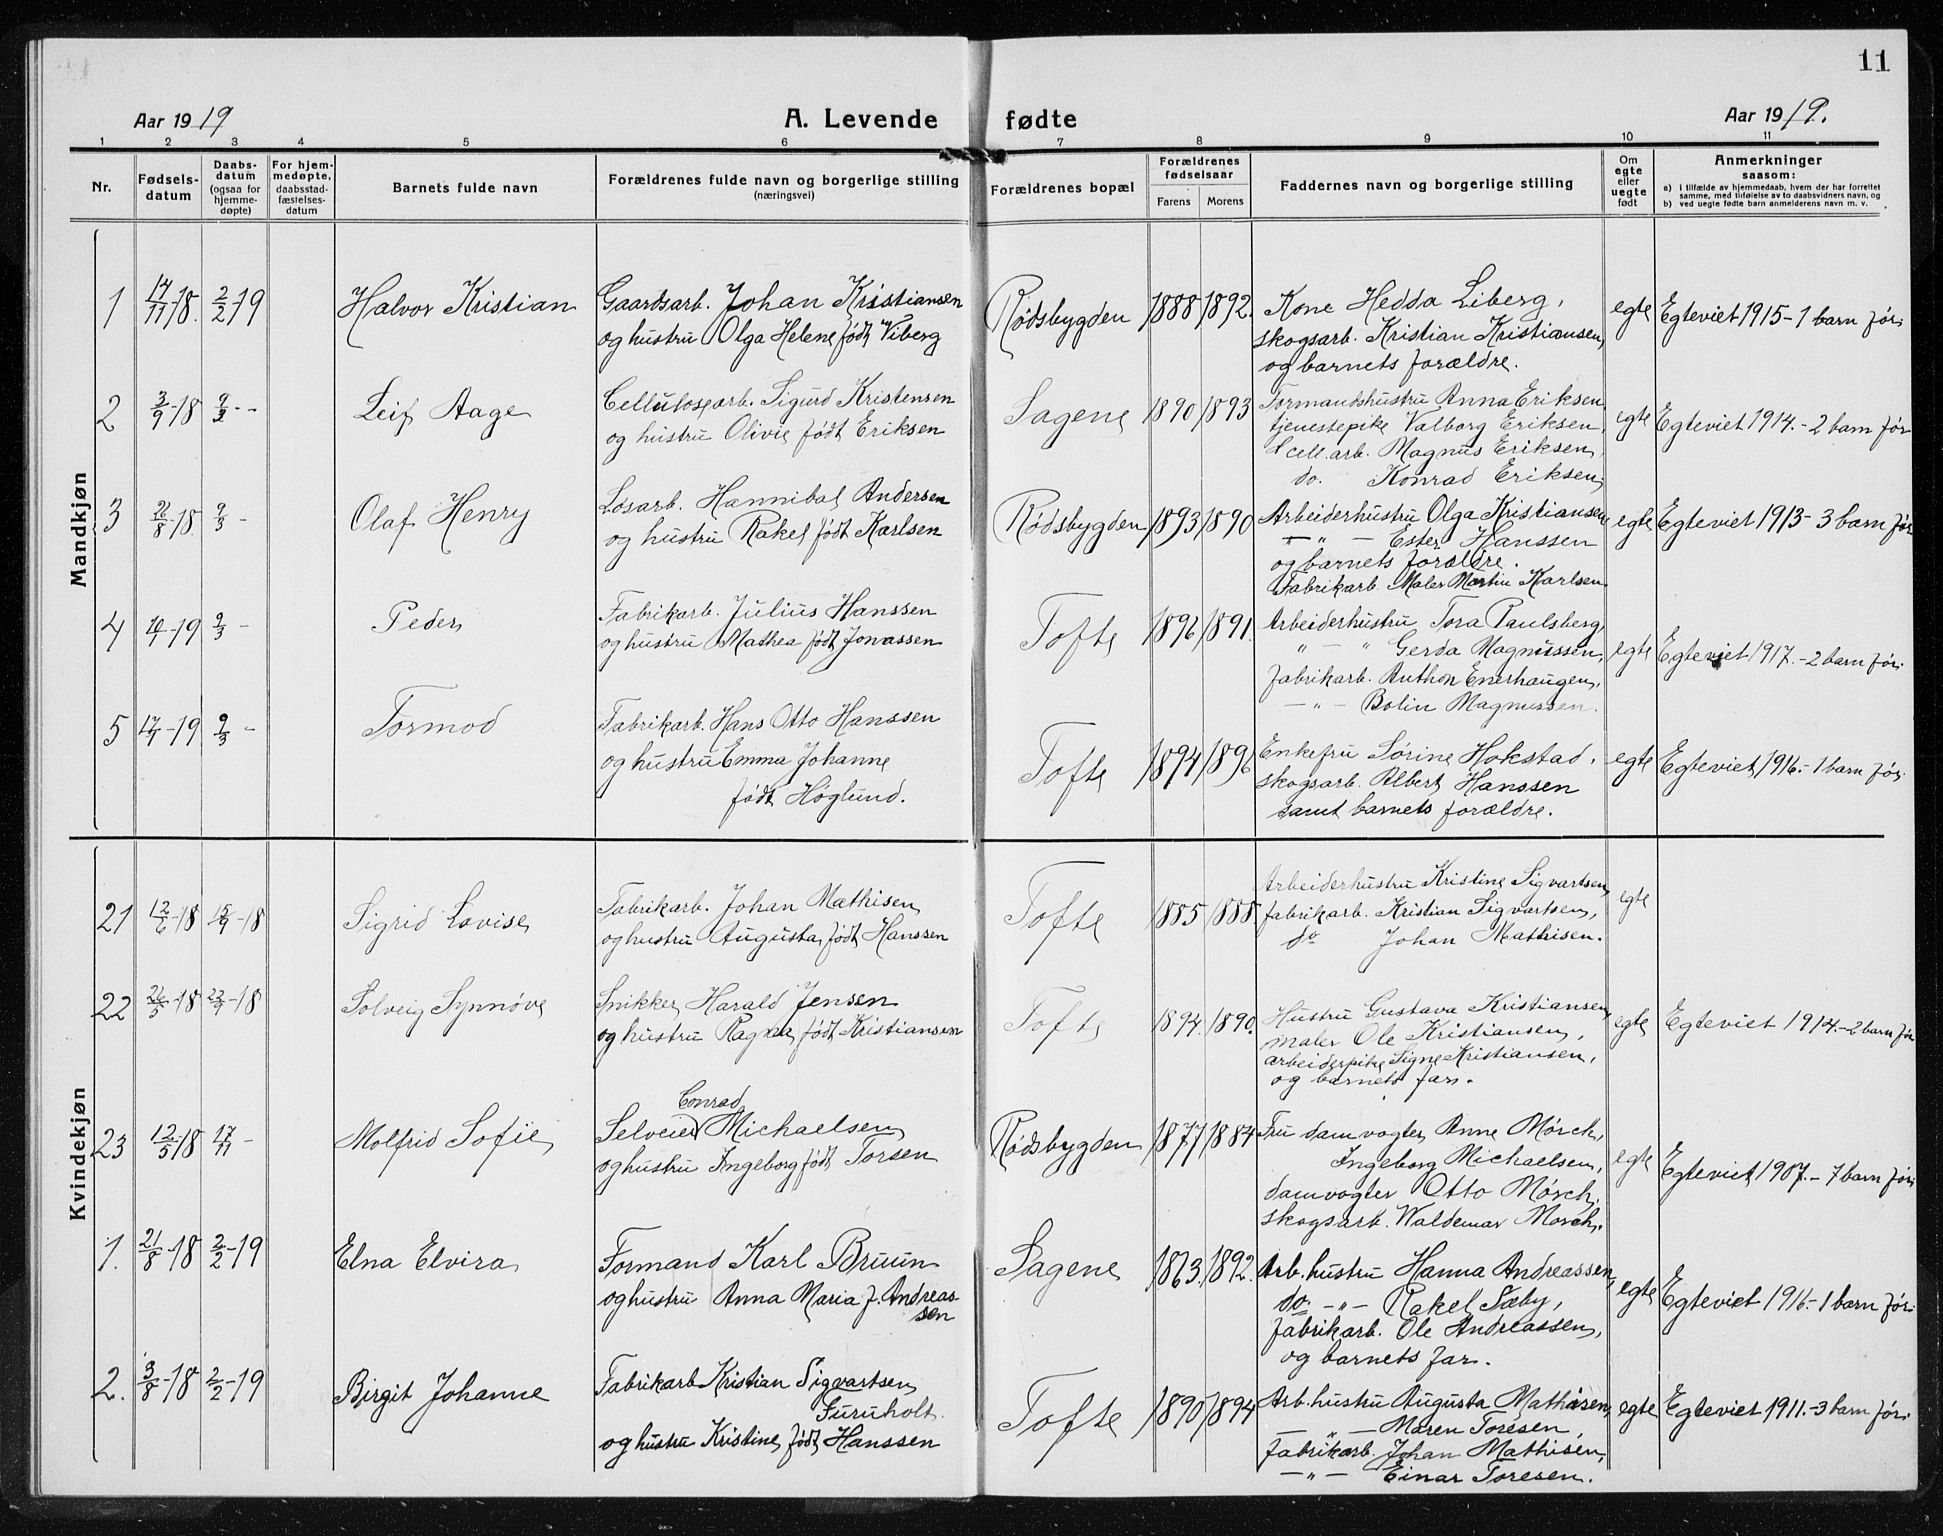 11
Aar 1919
A. Levende fødte
Aar 1919.
1 2 3 4 5 6 7 8 9 10 11
Nr.
Fødsels-
datum
Daabs-
datum
(ogsaa for
hjemme-
døpte)
For hjem-
medøpte,
daabsstad-
fæstelses-
datum
Barnets fulde navn
Forældrenes fulde navn og borgerlige stilling
(næringsvei)
Forældrenes bopæl
Forældrenes
fødselsaar
Farens Morens
Faddernes navn og borgerlige stilling
Om
egte
eller
uegte
født
Anmerkninger
saasom:
a) I tilfælde av hjemmedaab, hvem der har forrettet
samme, med tilføielse av to daabsvidners navn, og
b) ved uegte fødte barn anmelderens navn m. v.
Mandkjøn
1 17/11-18. 2/2-19 Halvor Kristian
Gaardsarb. Johan Kristiansen
og hustru Olga Helene født Viberg
Rødsbygden 1888 1892.
Kone Hedda Liberg,
skogsarb. Kristian Kristiansen,
og barnets forældre.
egte Egteviet 1915 - 1 barn før.
2 3/9-18 9/3 - - Leif Aage
Cellulosearb. Sigurd Kristensen
og hustru Olivie født Eriksen
Sagene 1890 1893
Formandshustru Anna Eriksen,
tjenestepike Valborg Eriksen,
cell. arb. Magnus Eriksen,
do. Konrad Eriksen,
egte Egteviet 1914. - 2 barn før
3 26/8-18. 9/3 - Olaf Henry
Løsarb. Hannibal Andersen
og hustru Rakel født Karlsen
Rødsbygden 1893 1890
Arbeiderhustru Olga Kristiansen
— " — Ester Hanssen
og barnets forældre.
Fabrikarb. Maler Martin Karlsen
egte Egteviet 1913 - 3 barn før
4 10/1-19 9/3 - Peder
Fabrikarb. Julius Hanssen
og hustru Mathea født Jonassen
Tofte 1896 1891.
Arbeiderhustru Tora Paulsberg,
" — " Gerda Magnussen,
fabrikarb. Anthon Enerhaugen,
— " — Bolin Magnussen.
egte Egteviet 1917. - 2 barn før.
5 17/1-19 9/3 - Tormod
Fabrikarb. Hans Otto Hanssen
og hustru Emma Johanne
født Høglund.
Tofte 1894 1896
Enkefru Sørine Hokstad,
skogsarb. Albert Hanssen
samt barnets forældre.
egte Egteviet 1916. - 1 barn før.
Kvindekjøn
21 12/6-18 15/9-18 Sigrid Lovise
Fabrikarb. Johan Mathisen
og hustru Augusta født Hanssen
Tofte 1885 1888
Arbeiderhustru Kristine Sigvartsen,
fabrikarb. Kristian Sigvartsen,
do Johan Mathisen.
egte
22 26/5-18 22/9-18 Solveig Synnøve
Snikker Harald Jensen
og hustru Ragna født Kristiansen
Tofte 1894. 1890.
Hustru Gustava Kristiansen,
maler Ole Kristiansen,
arbeiderpike Signe Kristiansen,
og barnets far.
egte Egteviet 1914. - 2 barn før
23 12/5-18 17/11 - Molfrid Sofie
Conrad
Selveier Michaelsen
og hustru Ingeborg født Torsen
Rødsbygden 1877 1884
Fru damvogter Anne Mørch,
Ingeborg Michaelsen,
damvogter Otto Mørch,
skogsarb. Waldemar Mørch.
egte Egteviet 1907. - 7 barn før.
1. 21/8-18 2/2-19 Elna Elvira
Formand Karl Bruun
og hustru Anna Maria f. Andreas-
sen
Sagene 1863. 1892.
Arb. hustru Hanna Andreassen,
do. - " - Rakel Sæby,
fabrikarb. Ole Andreassen,
og barnets far.
egte Egteviet 1916. - 1 barn før.
2. 3/8-18 2/2-19 Birgit Johanne
Fabrikarb Kristian Sigvartsen
Furuholt.
og hustru Kristine født Hanssen
Tofte 1890 1894
Arb. hustru Augusta Mathisen,
— " — Maren Toresen,
fabrikarb. Johan Mathisen,
— " — Einar Toresen.
egte Egteviet 1911. - 3 barn før.